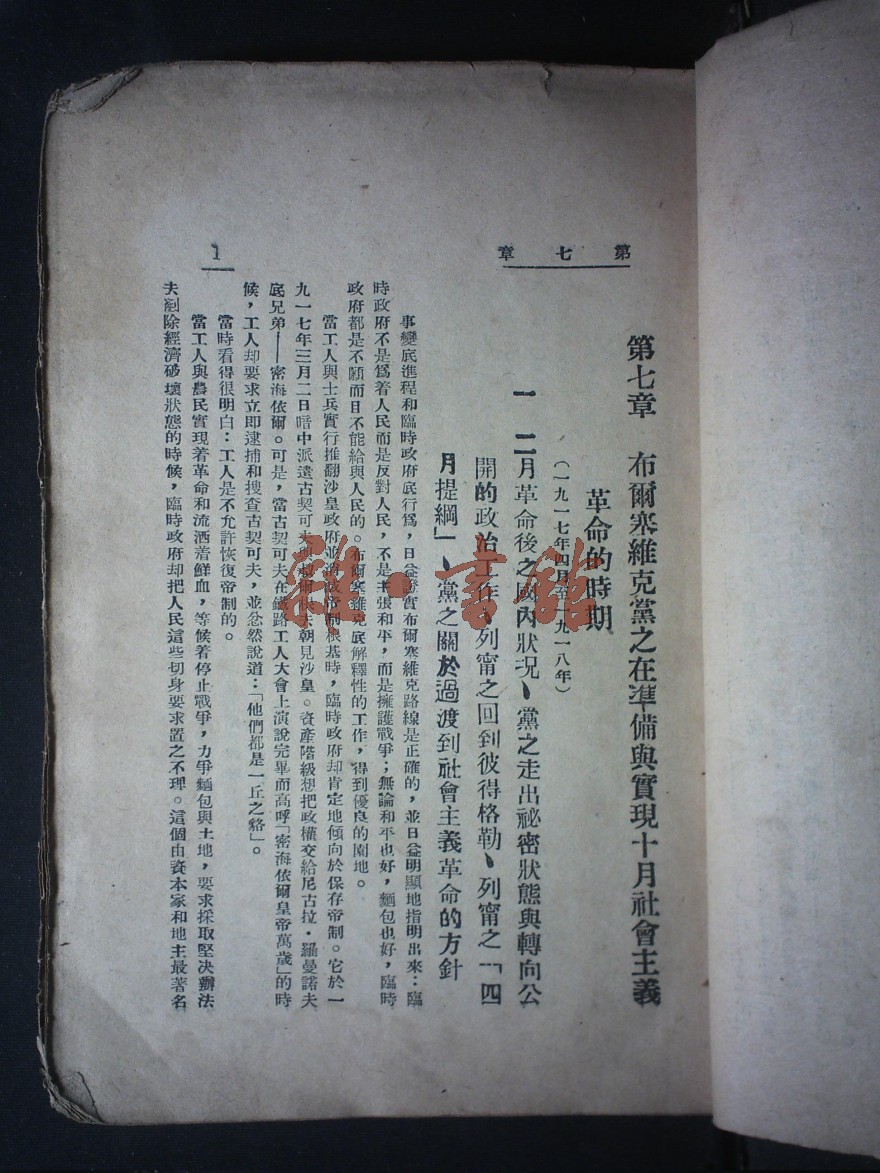 第七章
1
第七章　布爾塞維克黨之在準備與實現十月社會主義
革命的時期
（一九一七年四月至一九一八年）
一　二月革命後之國內狀況、黨之走出祕密狀態與轉向公
開的政治工作、列甯之回到彼得格勒、列甯之「四
月提綱」、黨之關於過渡到社會主義革命的方針
事變底進程和臨時政府底行爲，日益證實布爾塞維克路線是正確的，並日益明顯地指明出來：臨
時政府不是爲着人民而是反對人民，不是主張和平，而是擁護戰爭；無論和平也好，麵包也好，臨時
政府都是不願而且不能給與人民的。布爾塞維克底解釋性的工作，得到優良的園地。
當工人與士兵實行推翻沙皇政府並消滅帝制根基時，臨時政府却肯定地傾向於保存帝制。它於一
九一七年三月二日暗中派遣古契可夫與 朝見沙皇。資產階級想把政權交給尼古拉·羅曼諾夫
底兄弟——密海依爾。可是，當古契可夫在鐵路工人大會上演說完畢而高呼「密海依爾皇帝萬歲」的時
候，工人却要求立即逮捕和搜查古契可夫，並忿然說道：「他們都是一丘之貉」。
當時看得很明白：工人是不允許恢復帝制的。
當工人與農民實現着革命和流洒着鮮血，等候着停止戰爭，力爭麵包與土地，要求採取堅決辦法
夫剷除經濟破壞狀態的時候，臨時政府却把人民這些切身要求置之不理。這個由資本家和地主最著名
雜·書館